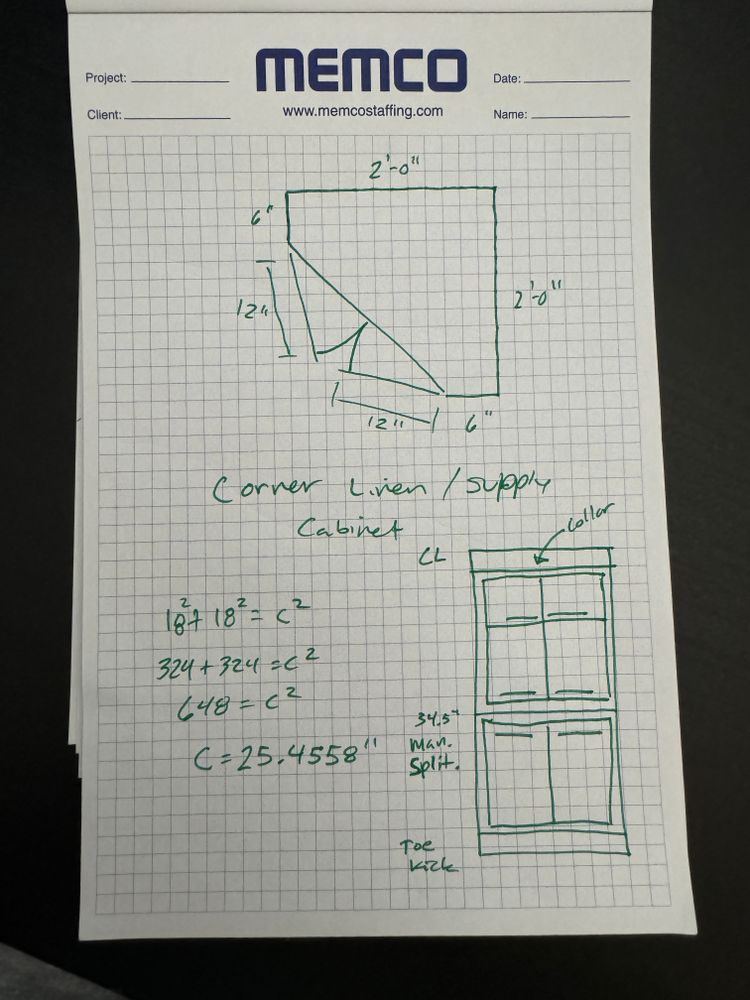 MEMCO
Project:
Date:
Client:
www.memcostaffing.com
Name:
2'-0"
6"
12"
2'-0"
12"
6"
Corner Linen / Supply
Cabinet
collar
CL
18² + 18² = C²
324 + 324 = C²
648 = C²
C = 25.4558"
34.5"
Man.
Split.
Toe
Kick